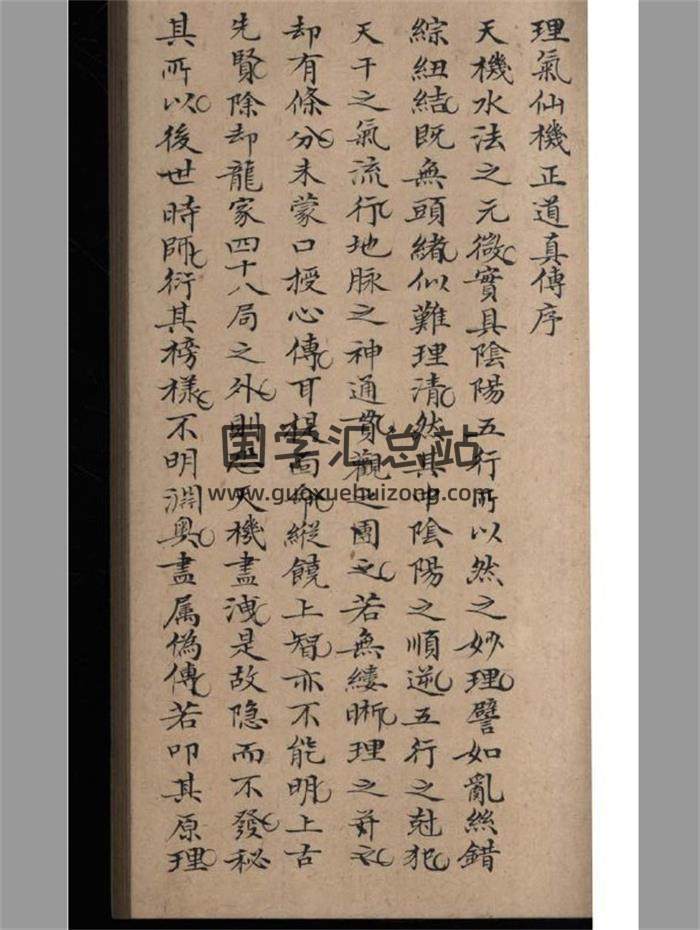 理氣仙機正道真傳序
天機水法之元微實具陰陽五行所以然之妙理譬如亂絲錯
綜紐結既無頭緒似難理清然其中陰陽之順逆五行之尅犯
天干之氣流行地脉之神通貫觀之團之若無縷晰理之井之
却有條分未蒙口授心傳耳提面命縱饒上智亦不能明上古
先賢除却龍家四十八局之外則恐天機盡洩是故隐而不發秘
其所以後世時師衍其榜樣不明淵奥盡属偽傳若叩其原理
国学汇总站
www.guoxuehuizong.com